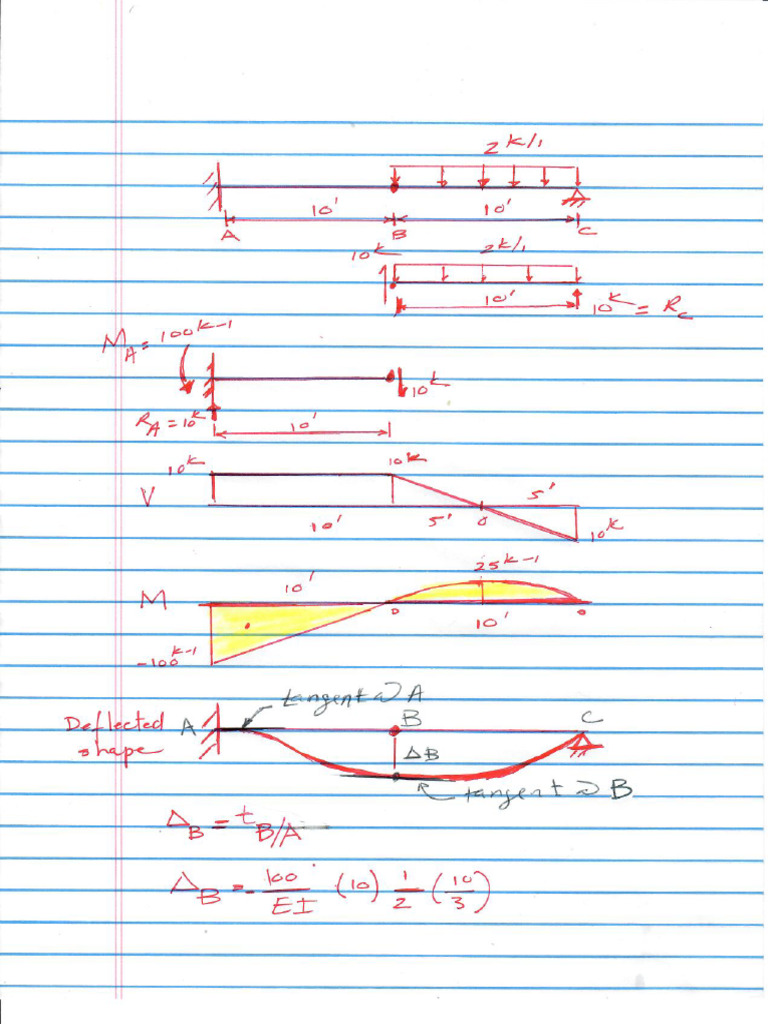 2 k/'
10' 10'
A B C
10k 2k/'
10' 10k = Rc
MA = 100k-1
10k
RA = 10k 10'
10k 10k
V 5'
10' 5' 0 10k
25k-1
10'
M 0 0
10'
-100k-1
tangent @ A
Deflected A B C
shape ΔB
tangent @ B
ΔB = tB/A
ΔB = -100/EI (10) 1/2 (10/3)